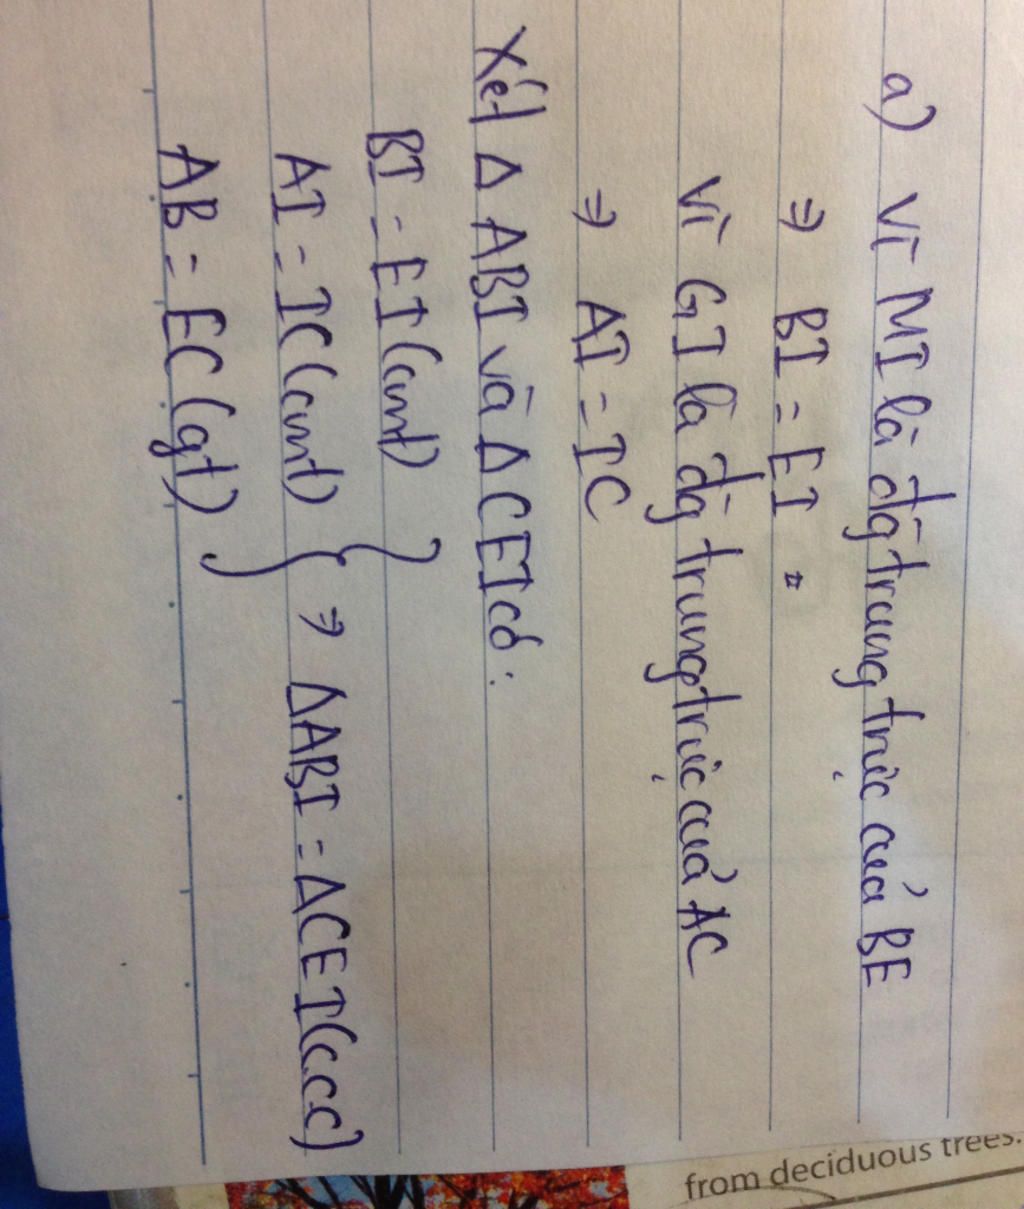 a) Vì MI là đg trung trực của BE
⇒ BI = EI
Vì GI là đg trung trực của AC
⇒ AI = IC
Xét Δ ABI và Δ CEI có :
BI = EI (cmt)
AI = IC (cmt) } ⇒ ΔABI = ΔCEI (c.c.c)
AB = EC (gt)
from deciduous trees.